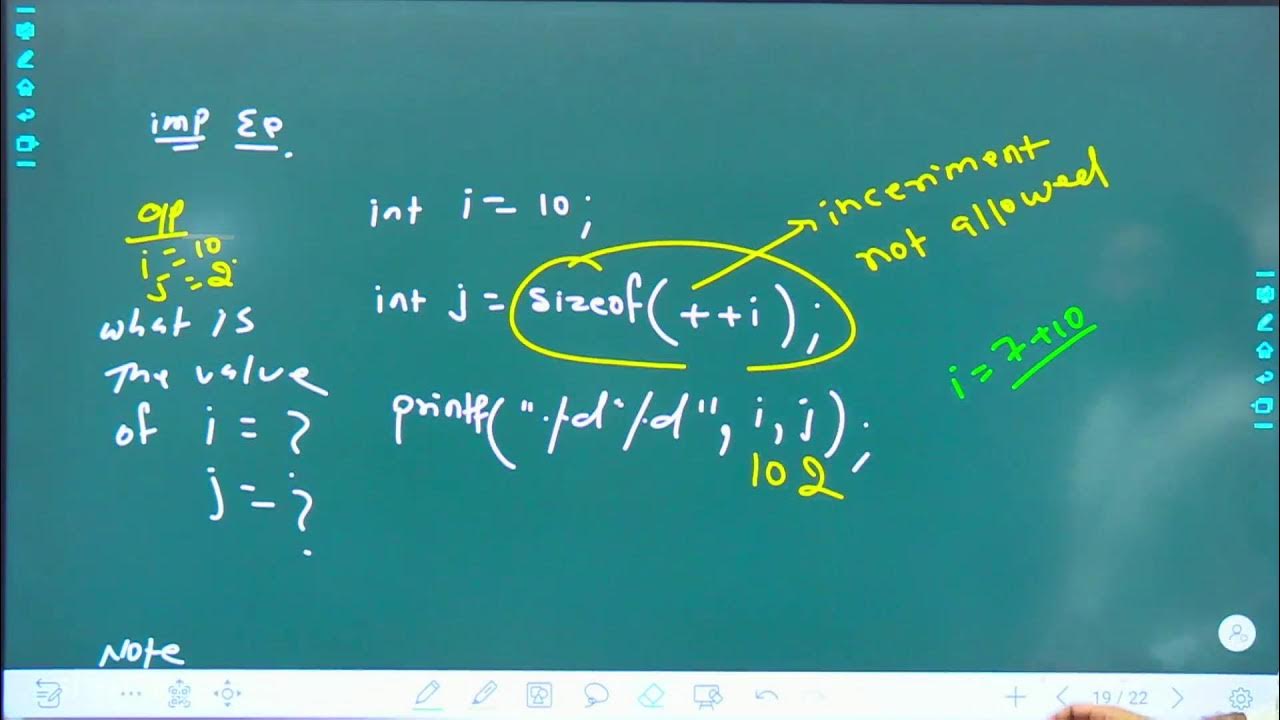 imp Σp.
o/p
i = 10
j = 2
what is
The value
of i = ?
j = ?
int i = 10;
int j = sizeof(++i);
printf("%d%d", i, j);
10 2
inceriment
not allowed
i = 7+10
Note
19 / 22